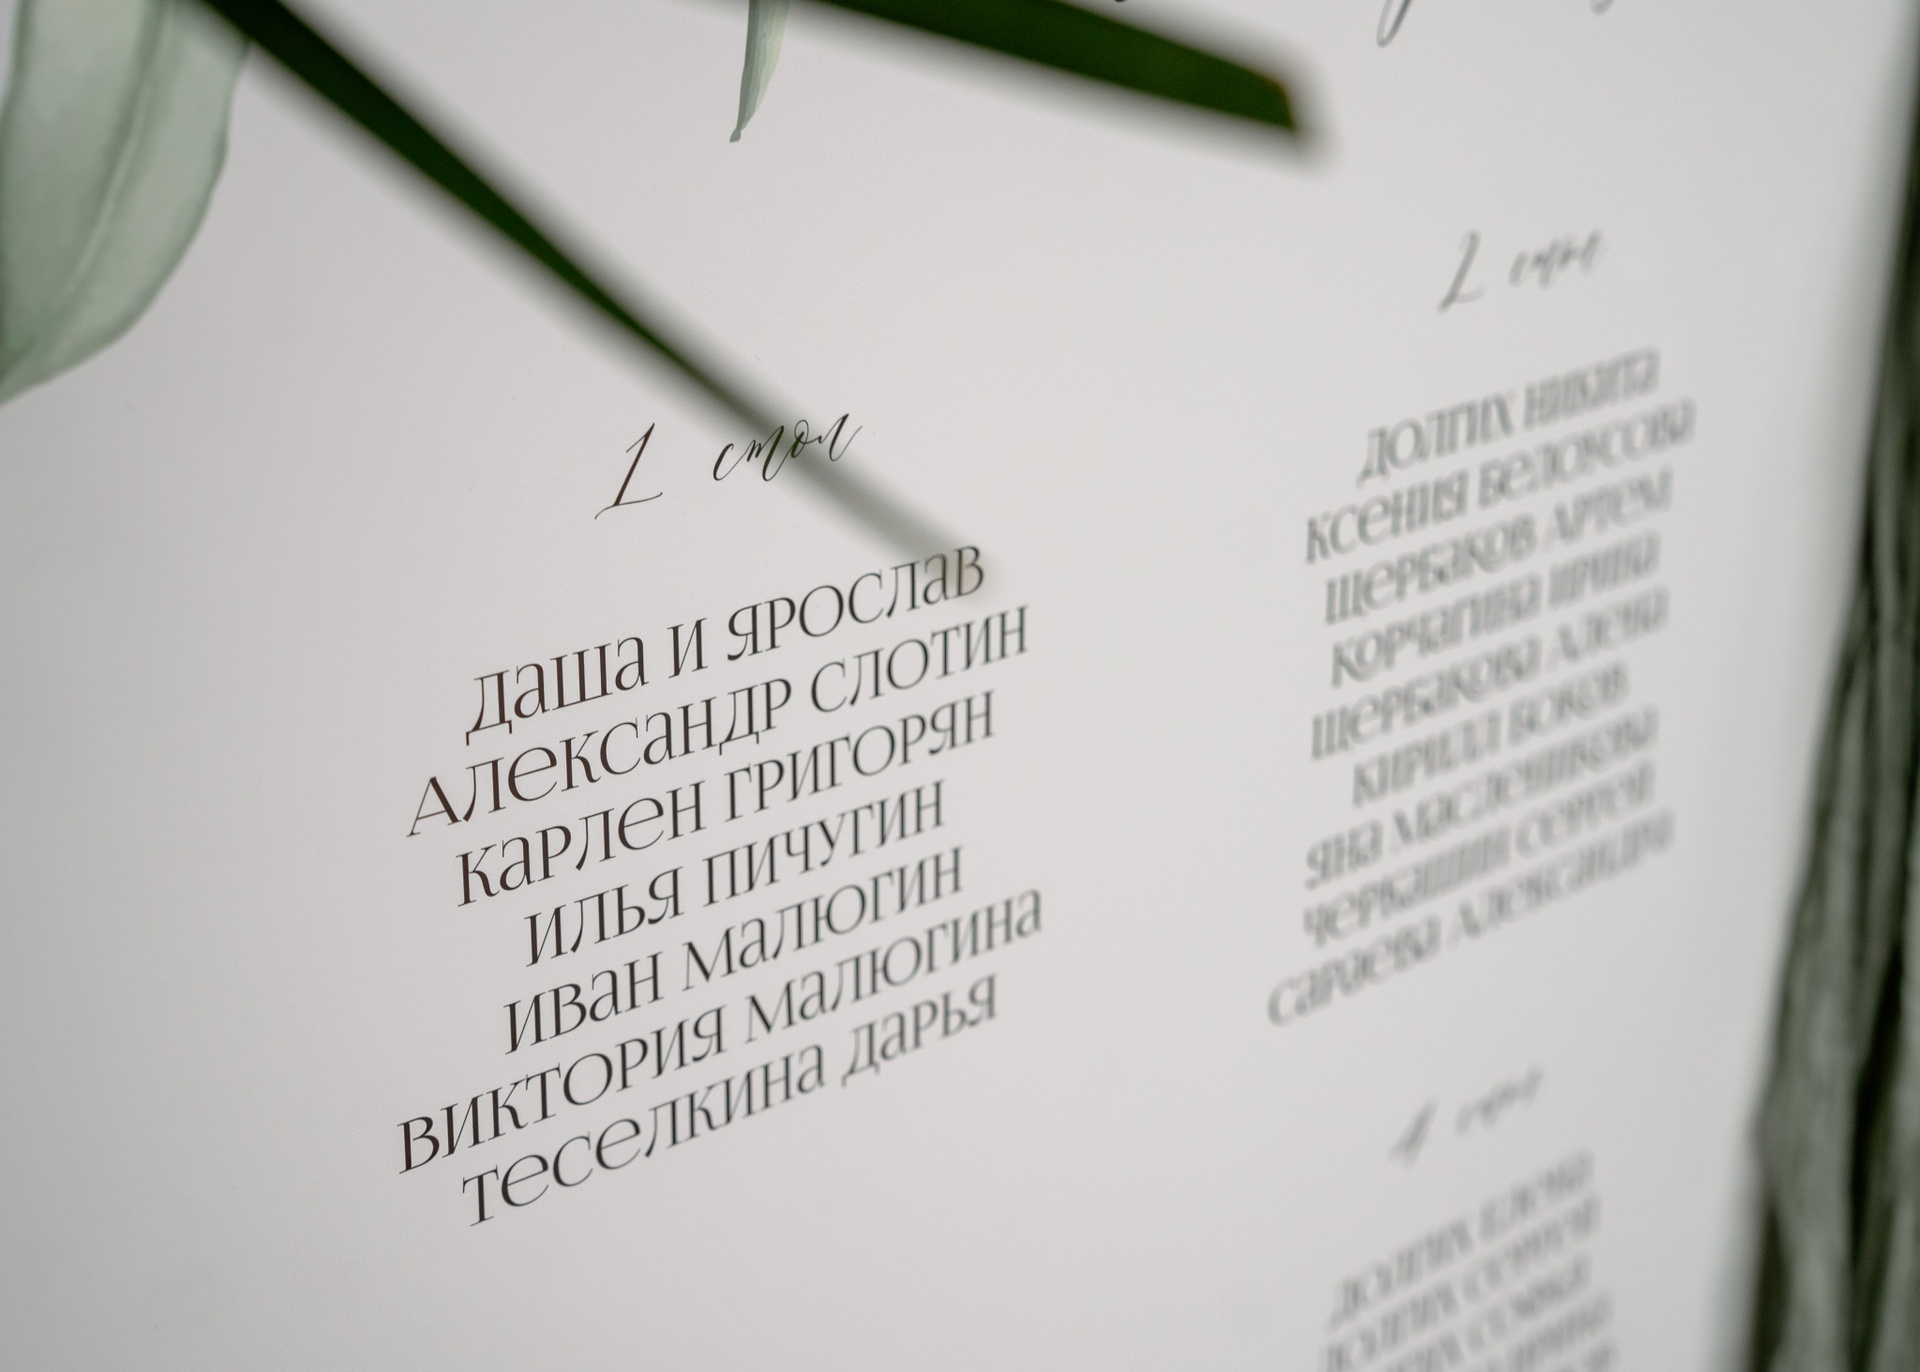 1 стол
Даша и Ярослав
Александр Слотин
Карлен Григорян
Илья Пичугин
Иван Малюгин
Виктория Малюгина
Теселкина Дарья
2 стол
Долгих Никита
Ксения Белоусова
Щербаков Артем
Корчагина Ирина
Щербакова Алена
Кирилл Боков
Яна Масленникова
Черкашин Сергей
Сараева Александра
4 стол
Долгих Елена
Долгих Сергей